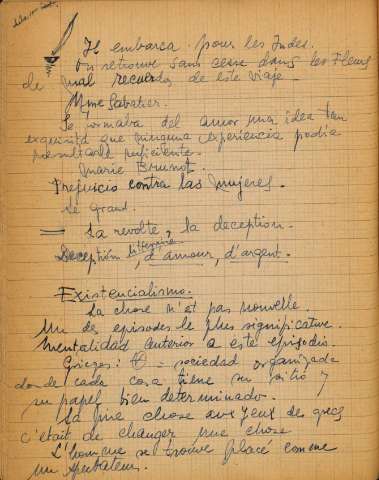 Il embarca pour les Indes.
On retrouve sans cesse dans les Fleurs
de mal recuerdos de este viaje.
Mme Sabatier.
Se formaba del amor una idea tan
exquisita que ninguna experiencia podia
Marie Brunot.
Prejuicio contra las mujeres.
le grand.
La revolte, la deception.
Deception litteraire, d'amour, d'argent.
Existencialismo.
La chose n'et pas nouvelle.
Un des episodes le plus significative.
Mentalidad anterior a este episodio.
Griegos: sociedad organizada
donde cada cosa tiene su sitio y
su papel bien determinado.
La que chose aux yeux des grecs
c'était de changer une chose
L'homme se trouve placé comme
un spectateur.